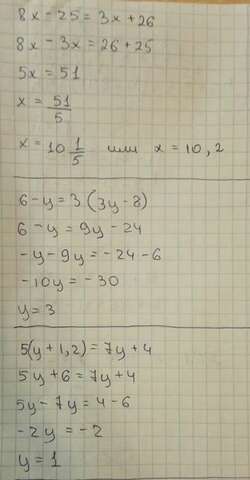 8x - 25 = 3x + 26
8x - 3x = 26 + 25
5x = 51
x = 51/5
x = 10 1/5 или x = 10,2
6 - y = 3 (3y - 8)
6 - y = 9y - 24
-y - 9y = -24 - 6
-10y = -30
y = 3
5(y + 1,2) = 7y + 4
5y + 6 = 7y + 4
5y - 7y = 4 - 6
-2y = -2
y = 1